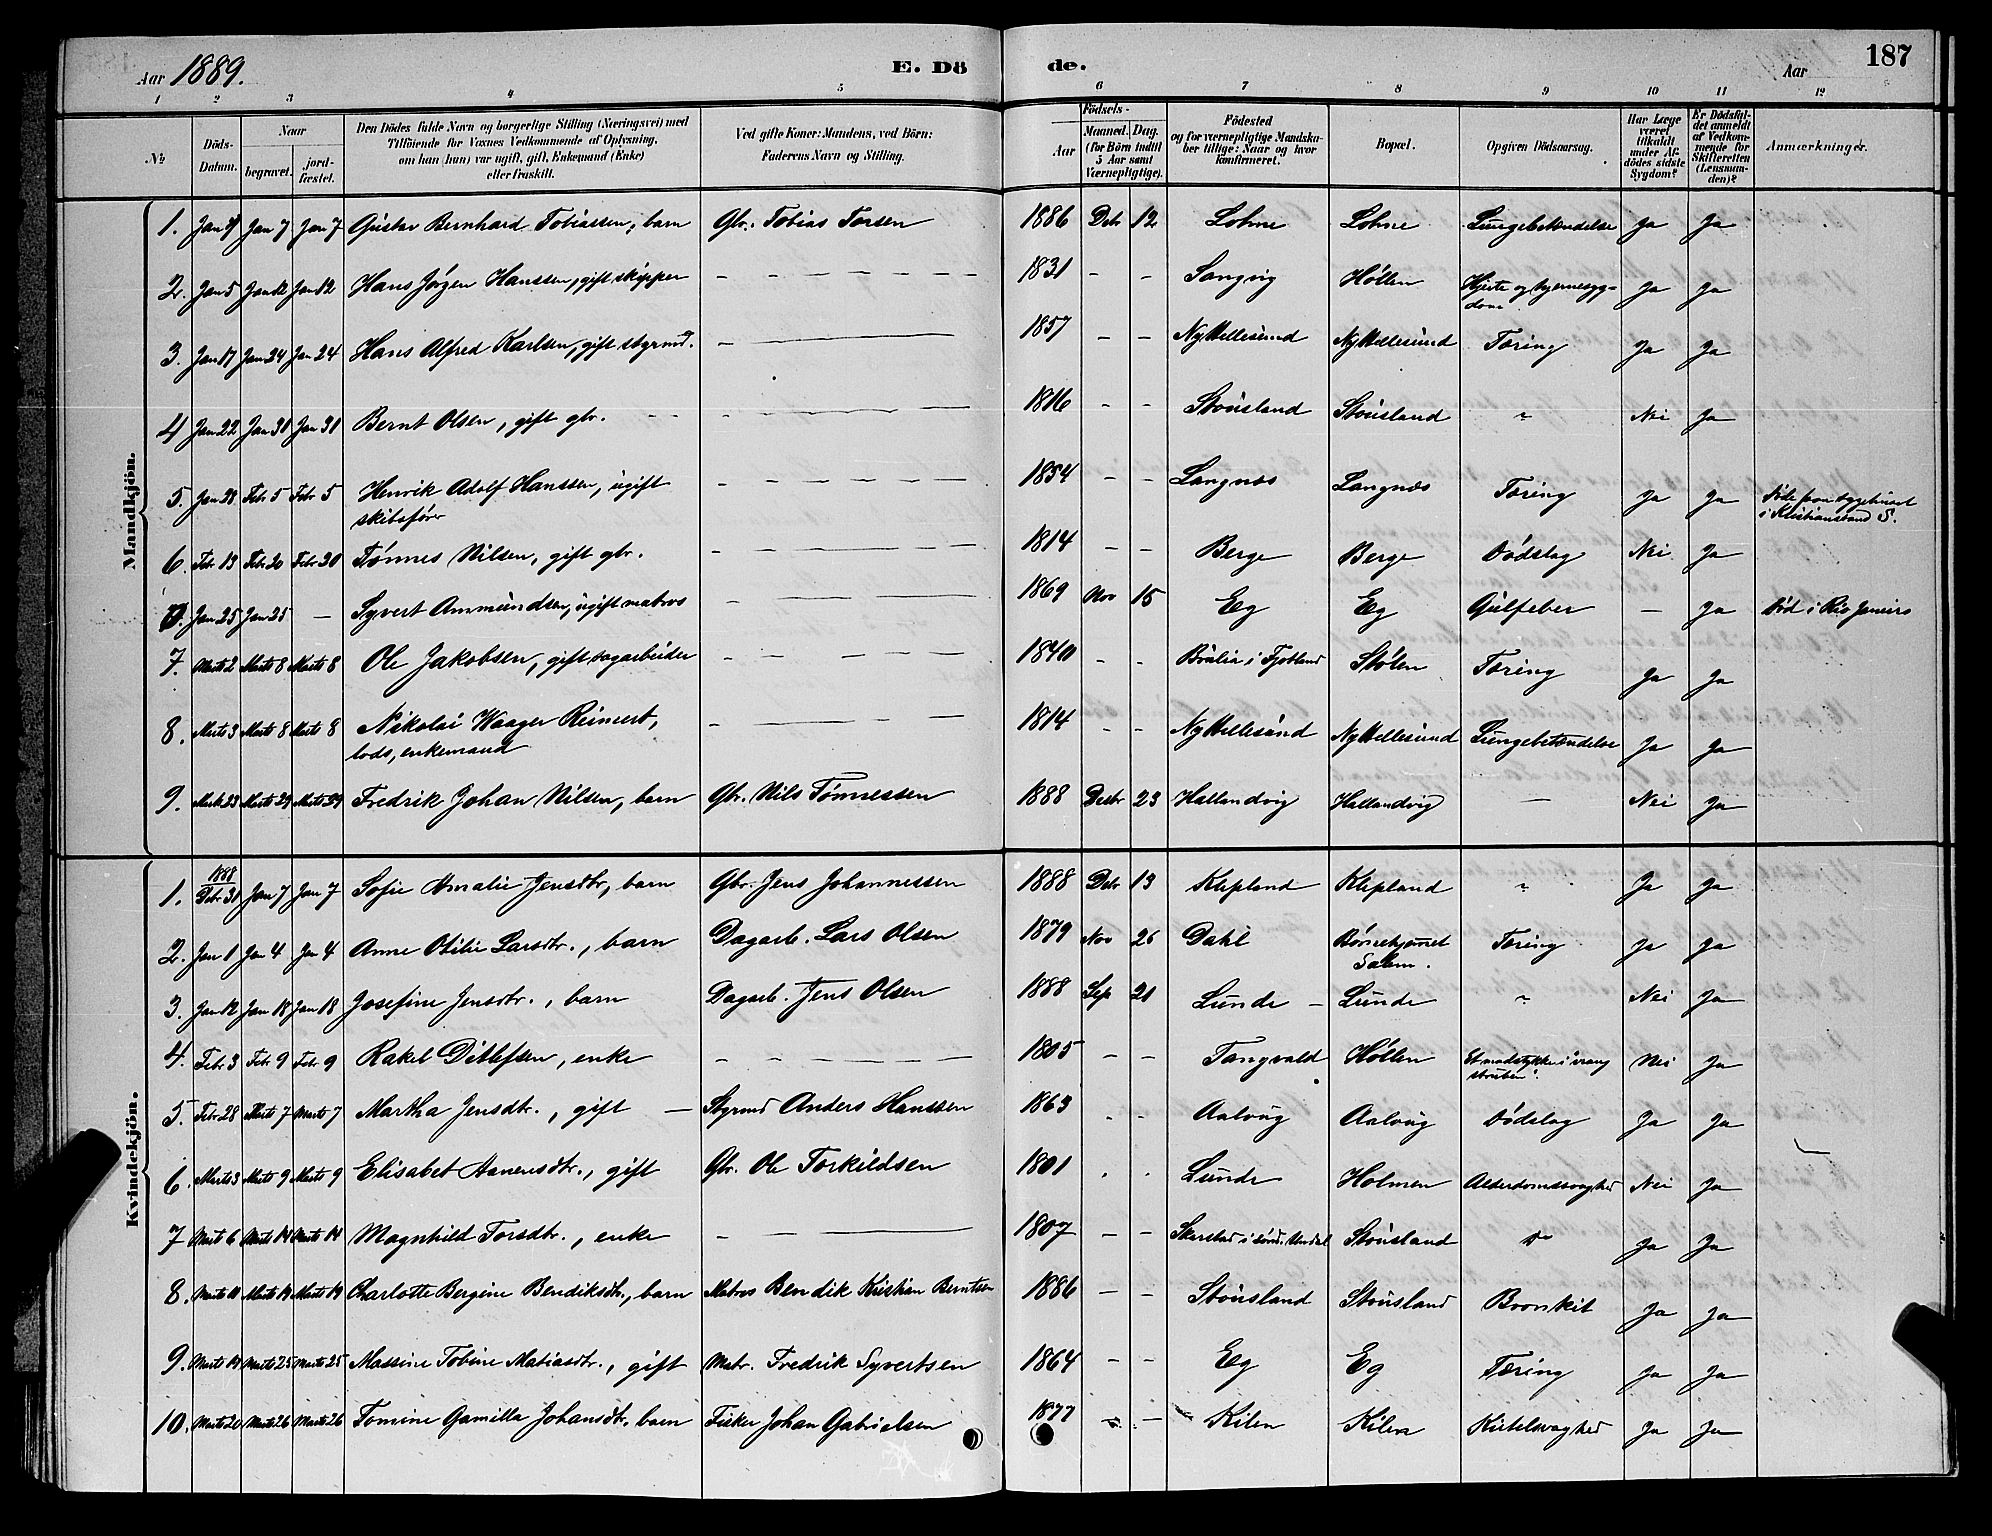 Aar 1889. E. Dö de. Aar 187
1 2 3 4 5 6 7 8 9 10 11 12
№ Döds-Datum. Naar begravet. jord-fæstet. Den Dödes fulde Navn og borgerlige Stilling (Næringsvei) med Tilföiende for Voxnes Vedkommende af Oplysning, om han (hun) var ugift, gift, Enkemand (Enke) eller fraskilt. Ved gifte Koner: Mandens, ved Börn: Faderens Navn og Stilling. Aar Födsels- Maaned. Dag. (for Börn indtil 5 Aar samt Værnepligtige). Födested og for værnepligtige Mandskaber tillige: Naar og hvor konfirmeret. Bopæl. Opgiven Dödsaarsag. Har Læge været tilkaldt under Afdödes sidste Sygdom? Er Dödsfaldet anmeldt af Vedkommende for Skifteretten (Lensmanden)? Anmærkninger.
Mandkjön.
1. Jan Jan 7 Jan 7 Gustav Bernhard Tobiassen, barn Gbr. Tobias Torsen 1886 Debr 12 Lohne Lohne Lungebetændelse Ja Ja
2. Jan 5 Jan 12 Jan 12 Hans Jörgen Hanssen, gift skipper – 1831 – – Langvig Höllen Hjerte og hjernesyg-
dom Ja Ja
3. Jan 17 Jan 24 Jan 24 Hans Alfred Karlsen, gift styrmd. – 1857 – – Ny Hellesund Ny Hellesund Tæring Ja Ja
4 Jan 22 Jan 31 Jan 31 Bernt Olsen, gift gbr. – 1816 – – Stousland Stousland " Nei Ja
5. Jan 28 Febr 5 Febr 5 Henrik Adolf Hanssen, ugift
skibsförer – 1854 – – Langnæs Langnæs Tæring Ja Ja Döde paa sygehuset
i Kristianssand S.
6. Febr 13 Febr 20 Febr 20 Tönnes Nilsen, gift gbr. – 1814 – – Berge Berge Dödslag Nei Ja
Jan 25 Jan 25 – Syvert Ammundsen, ugift matros – 1869 Nov 15 Eg Eg Gulfeber – Ja Död i Rio Janeiro
7. Marts 2 Marts 8 Marts 8 Ole Jakobsen, gift dagarbeider – 1840 – – Bralia i Fjotland Stölen Tæring Ja Ja
8. Marts 3 Marts 8 Marts 8 Nikolai Waager Reimert,
lods, enkemand – 1814 – – Ny Hellesund Ny Hellesund Lungebetændelse Ja Ja
9. Marts 23 Marts 29 Marts 29 Fredrik Johan Nilsen, barn Gbr. Nils Tönnessen 1888 Decbr 23 Hallandvig Hallandvig – Nei Ja
Kvindekjön.
1. 1888
Debr 31 Jan 7 Jan 7 Sofie Amalie Jensdtr, barn Gbr. Jens Johannessen 1888 Debr 13 Klepland Klepland " Ja Ja
2. Jan 1 Jan 4 Jan 4 Anne Otilie Larsdtr., barn Dagarb. Lars Olsen 1879 Nov 26 Dahl Börnehjemmet
Salem. Tæring Ja Ja
3. Jan 12 Jan 18 Jan 18 Josefine Jensdtr., barn Dagarb. Jens Olsen 1888 Sep 21 Lunde – Lunde " Nei Ja
4. Febr 3 Febr 9 Febr 9 Rakel Ditlefsen, enke – 1805 – – Tangvald Höllen Et madstykke i "vrang
struben". Nei Ja
5. Febr 28 Marts 7 Marts 7 Martha Jensdtr., gift – Styrmd Anders Hanssen 1863 – – Aalvig Aalvig Dödslag Ja Ja
6. Marts 3 Marts 9 Marts 9 Elisabet Aanensdtr., gift Gbr. Ole Torkildsen 1801 Lunde Holmen Alderdomssvaghed Nei Ja
7 Marts 6 Marts 14 Marts 14 Magnhild Torsdtr., enke – 1807 – – Skarstad i sönd. Undal Stousland Do Ja Ja
8. Marts Marts 19 Marts 19 Charlotte Bergine Bendiksdtr., barn Matros Bendik Kristian Berntsen 1886 – – Stousland Stousland Bronkit Ja Ja
9. Marts 19 Marts 25 Marts 25 Massine Tobine Matiasdtr., gift Matr. Fredrik Syvertsen 1864 – – Eg Eg Tæring Ja Ja
10. Marts 20 Marts 26 Marts 26 Tomine Gamilla Johansdtr. barn Fisker Johan Gabrielsen 1877 – – Kilen Kilen Kirtelsvaghed Ja Ja